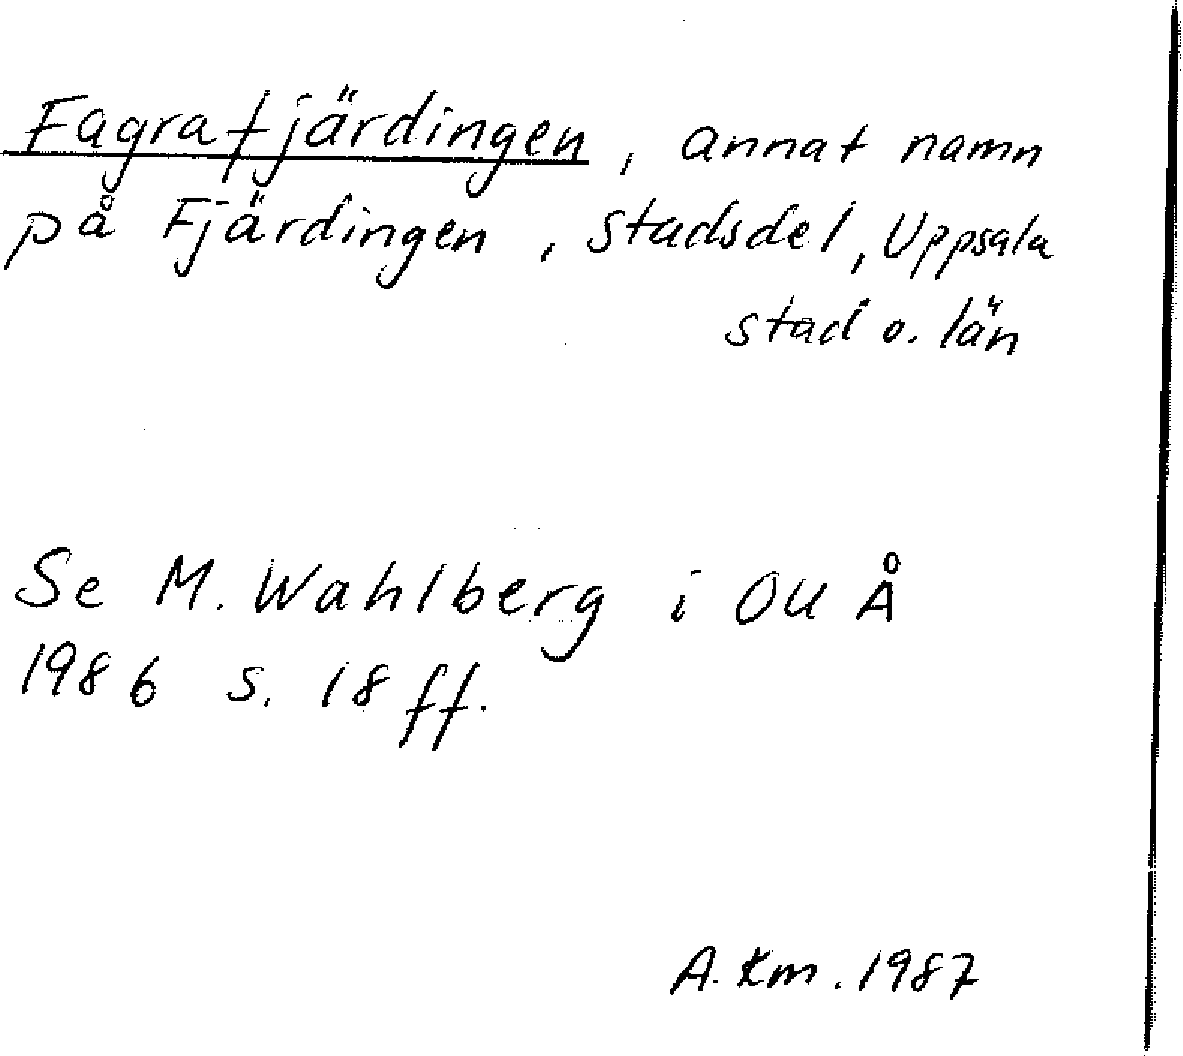 Fagrafjärdingen, annat namn
på Fjärdingen, stadsdel, Uppsala
stad o. län
Se M. Wahlberg i OUÅ
1986 s. 18 ff.
A. Km. 1987